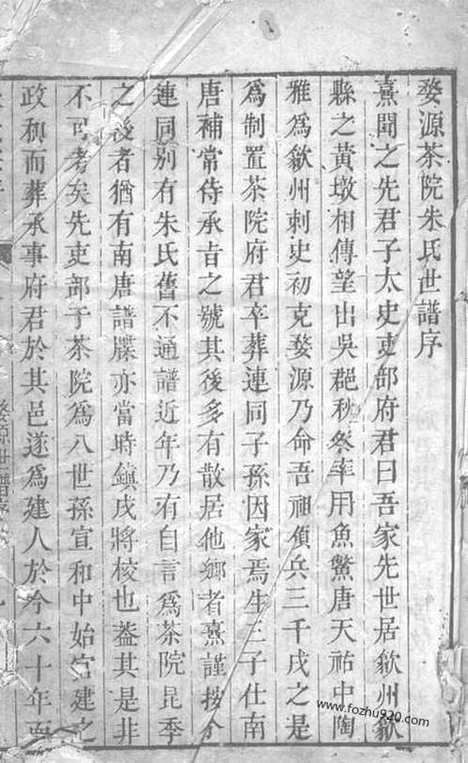 婺源茶院朱氏世譜序
熹聞之先君子太史吏部府君曰吾家先世居歙州歙
縣之黃墩相傳望出吳郡秋祭率用魚鱉唐天祐中陶
雅爲歙州刺史初克婺源乃命吾祖領兵三千戍之是
爲制置茶院府君卒葬連同子孫因家焉生三子仕南
唐補常侍承旨之號其後多有散居他鄉者熹謹按今
連同別有朱氏舊不通譜近年乃有自言爲茶院昆季
之後者猶有南唐譜牒亦當時鎮戍將校也葢其是非
不可考矣先吏部于茶院爲八世孫宣和中始官建之
政和而葬承事府君於其邑遂爲建人於今六十年而
婺源世譜序
www.fozhu920.com